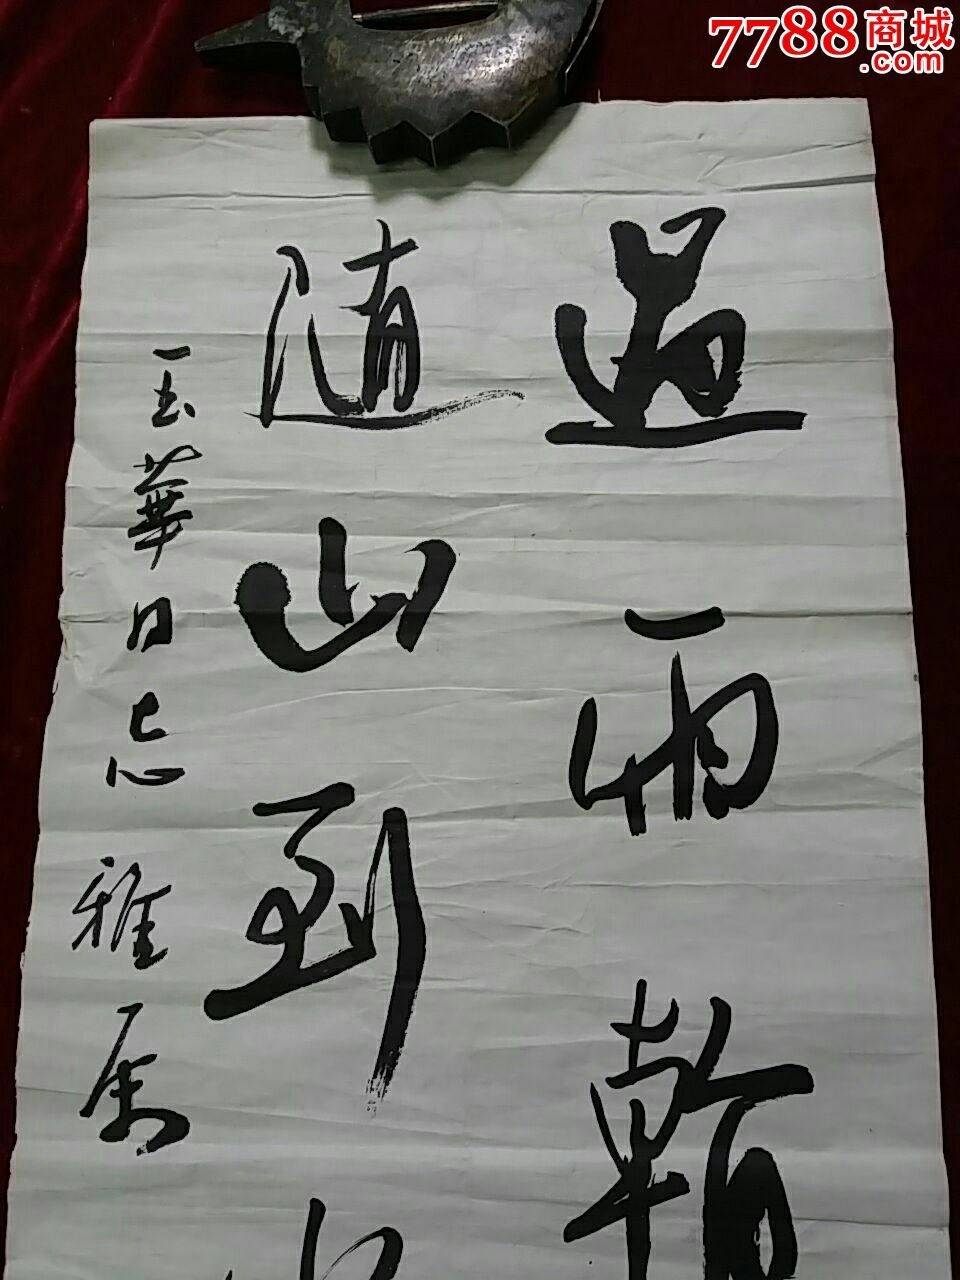 7788商城
.com
過雨
隨山到
玉華同志雅属